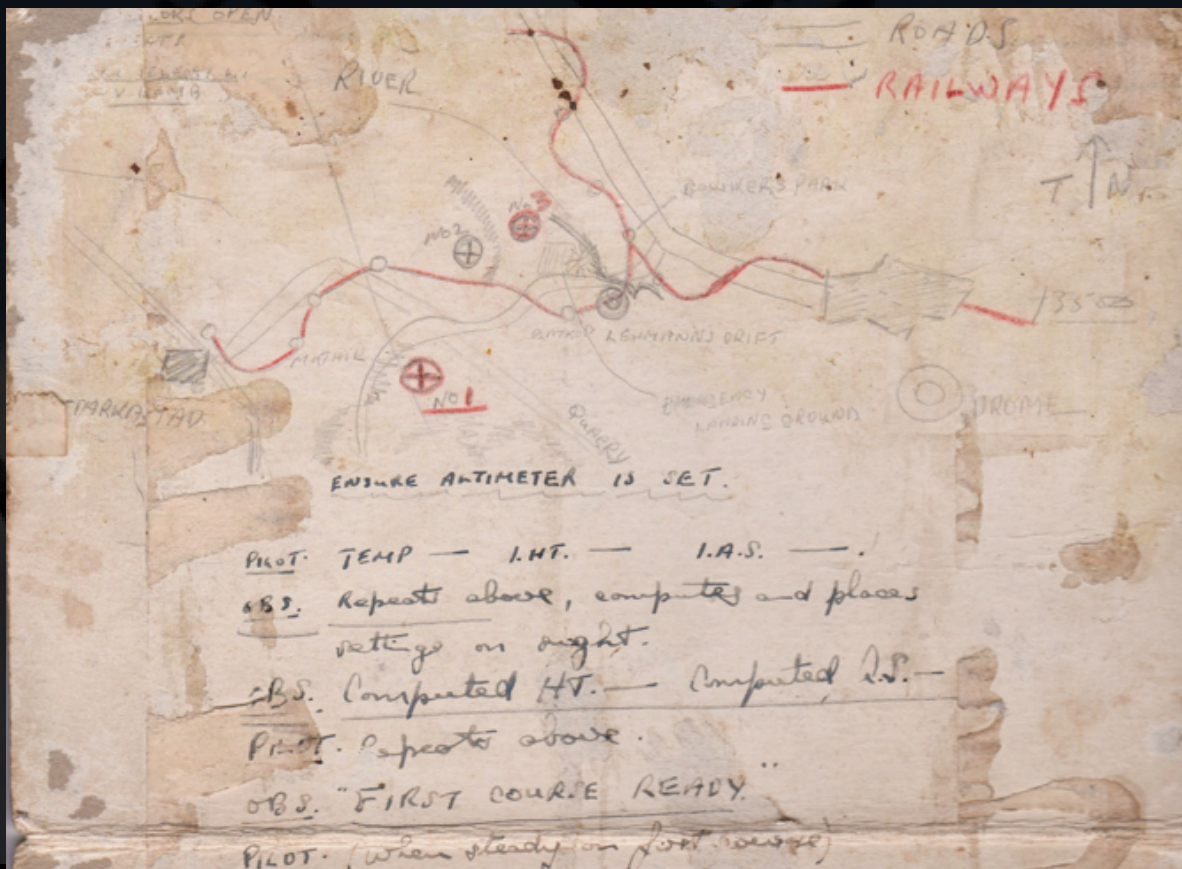 OPEN.
ROADS
RIVER
RAILWAYS
BOWKERS PARK
T N.
No 3
No 2
3500
LEHMANNS DRIFT
No 1
EMERGENCY
LANDING GROUND
DROME
QUARRY
ENSURE ALTIMETER IS SET.
PILOT. TEMP — I.HT. — I.A.S. — .
OBS. Repeats above, computes and places
settings on sight.
OBS. Computed HT. — Computed A.S. —
PILOT. Repeats above.
OBS. "FIRST COURSE READY"
PILOT. (When steady on first course)